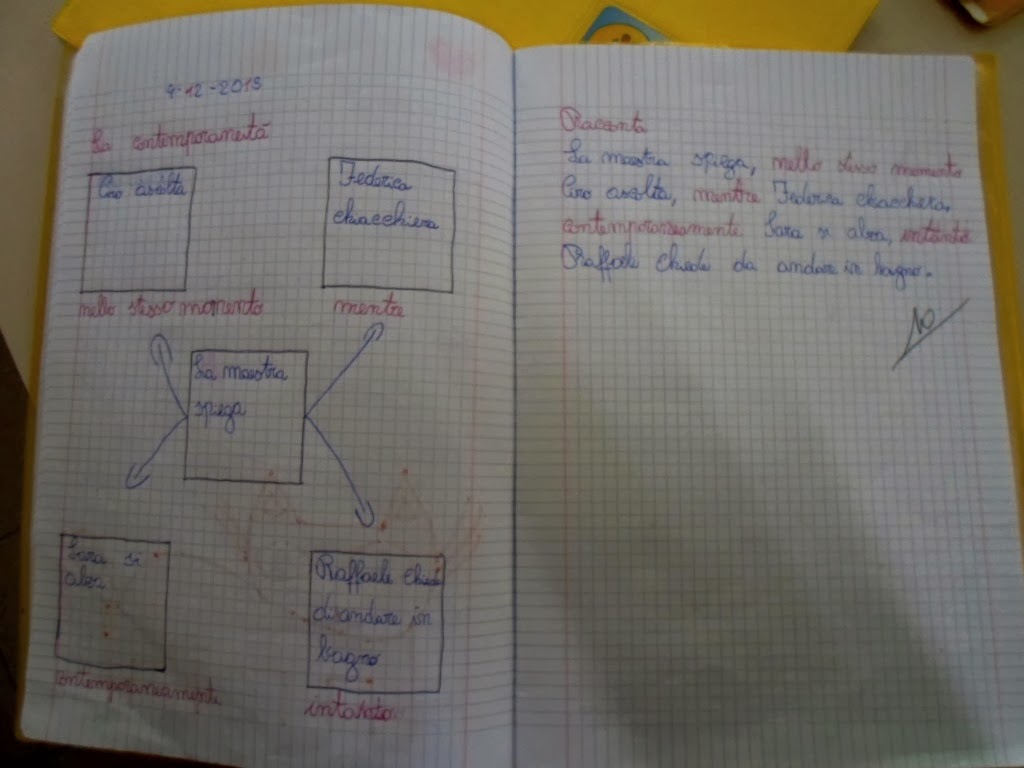 9-12-2013
La contemporaneità
Ciro ascolta
nello stesso momento
Federica
chiacchiera
mentre
La maestra
spiega
Sara si
alza
contemporaneamente
Raffaele chiede
di andare in
bagno
intanto
Racconta
La maestra spiega, nello stesso momento
Ciro ascolta, mentre Federica chiacchera,
contemporaneamente Sara si alza, intanto
Raffaele chiede da andare in bagno.
10